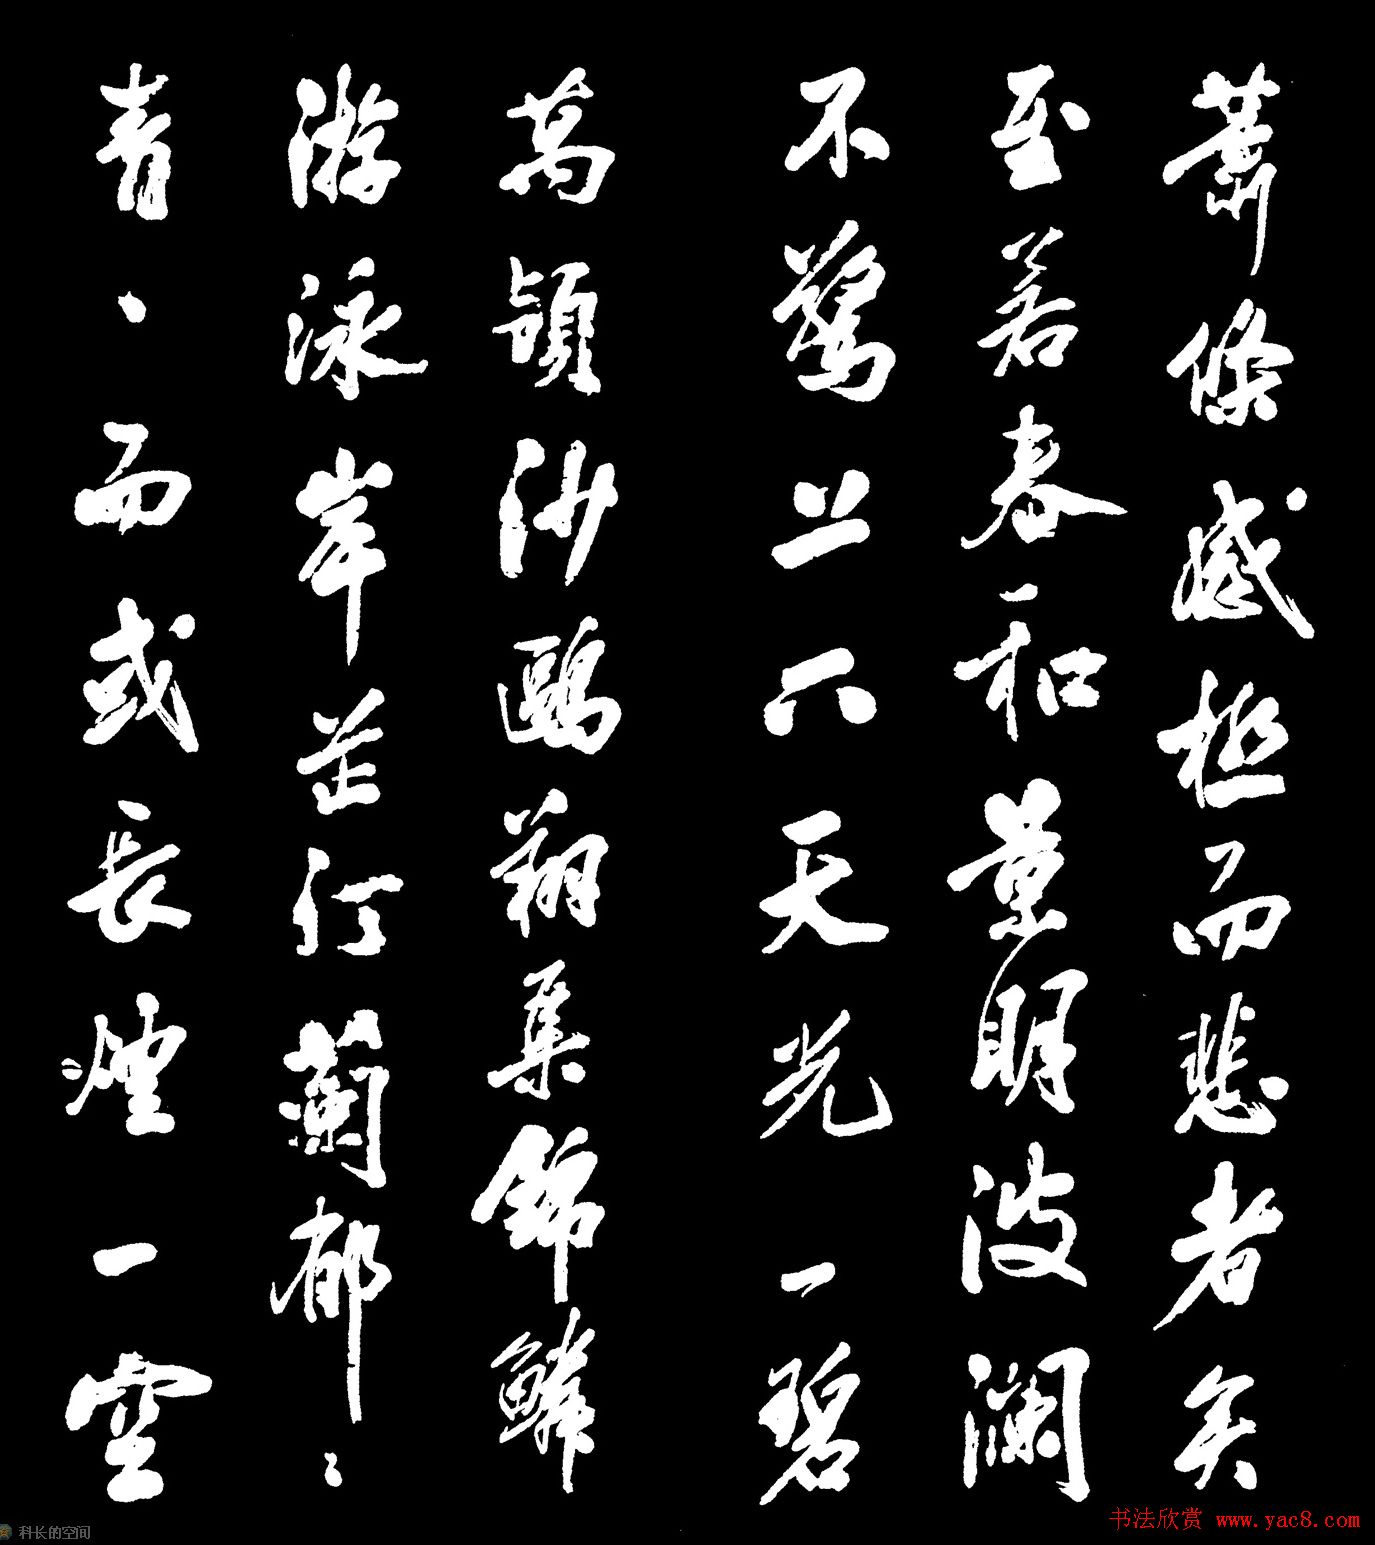 蕭條感極而悲者矣
至若春和景明波瀾
不驚上下天光一碧
萬頃沙鷗翔集錦鱗
游泳岸芷汀蘭郁〻
青丶而或長煙一空
书法欣赏 www.yac8.com
科长的空间